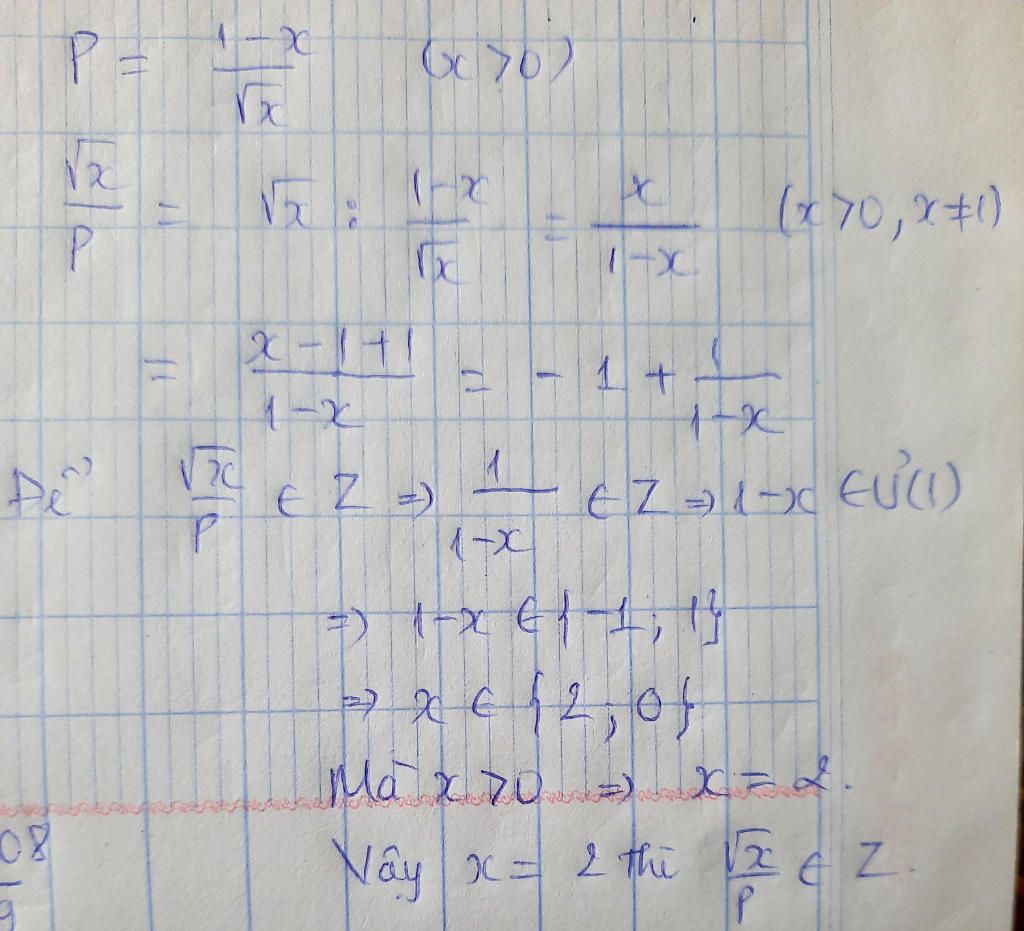 P = \frac{1-x}{\sqrt{x}} (x>0)
\frac{\sqrt{x}}{P} = \sqrt{x} : \frac{1-x}{\sqrt{x}} = \frac{x}{1-x} (x>0, x≠1)
= \frac{x-1+1}{1-x} = -1 + \frac{1}{1-x}
Để \frac{\sqrt{x}}{P} ∈ Z => \frac{1}{1-x} ∈ Z => 1-x ∈ Ư(1)
=> 1-x ∈ {-1; 1}
=> x ∈ {2; 0}
Mà x>0 => x = 2.
08
Vậy x = 2 thì \frac{\sqrt{x}}{P} ∈ Z.
9